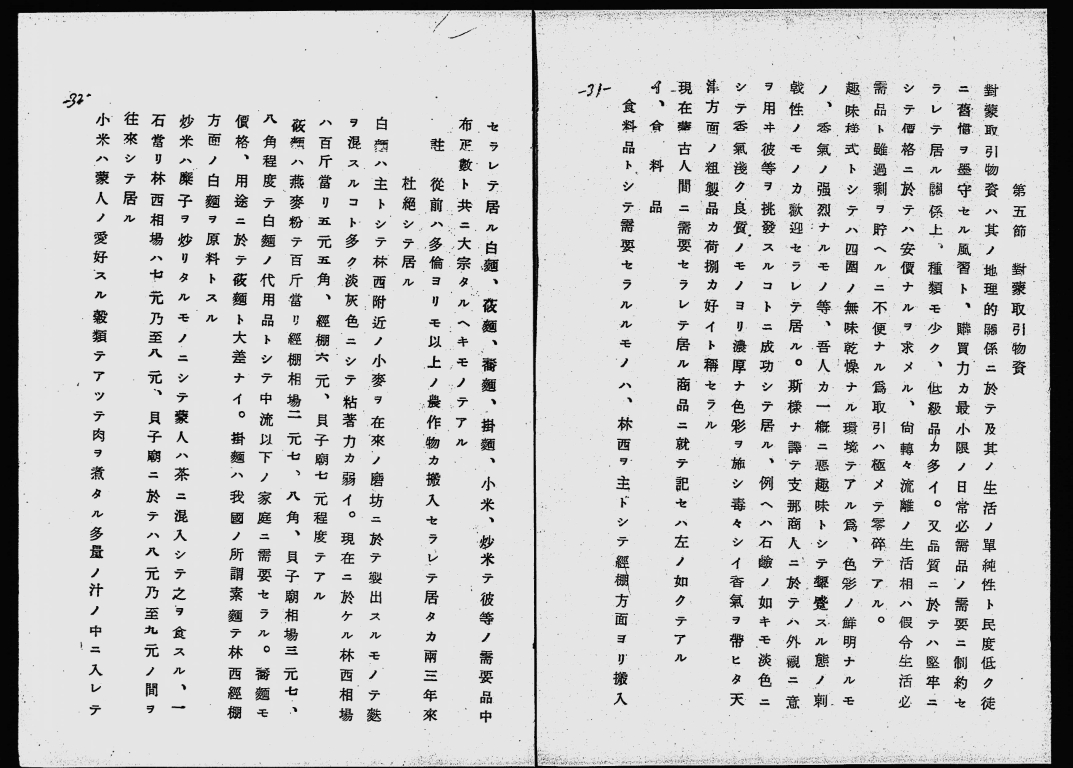 -31-
第五節　對蒙取引物資
對蒙取引物資ハ其ノ地理的關係ニ於テ及其ノ生活ノ單純性ト民度低ク徒
ニ舊慣ヲ墨守セル風習ト、購買力カ最小限ノ日常必需品ノ需要ニ制約セ
ラレテ居ル關係上、種類モ少ク、低級品カ多イ。又品質ニ於テハ堅牢ニ
シテ價格ニ於テハ安價ナルヲ求メル、尙轉々流離ノ生活相ハ假令生活必
需品ト雖過剩ヲ貯ヘルニ不便ナル爲取引ハ極メテ零碎テアル。
趣味樣式トシテハ四圍ノ無味乾燥ナル環境テアル爲、色彩ノ鮮明ナルモ
ノ、香氣ノ强烈ナルモノ等、吾人カ一槪ニ惡趣味トシテ顰蹙スル態ノ刺
戟性ノモノカ歡迎セラレテ居ル。斯樣ナ譯テ支那商人ニ於テハ外觀ニ意
ヲ用ヰ彼等ヲ挑發スルコトニ成功シテ居ル、例ヘハ石鹼ノ如キモ淡色ニ
シテ香氣淺ク良質ノモノヨリ濃厚ナ色彩ヲ施シ毒々シイ香氣ヲ帶ヒタ天
津方面ノ粗製品カ荷捌カ好イト稱セラル
現在蒙古人間ニ需要セラレテ居ル商品ニ就テ記セハ左ノ如クテアル
イ、食料品
食料品トシテ需要セラルルモノハ、林西ヲ主トシテ經棚方面ヨリ搬入
-32-
セラレテ居ル白麵、莜麵、蕎麵、掛麵、小米、炒米テ彼等ノ需要品中
布疋數ト共ニ大宗タルヘキモノテアル
註　從前ハ多倫ヨリモ以上ノ農作物カ搬入セラレテ居タカ兩三年來
杜絕シテ居ル
白麵ハ主トシテ林西附近ノ小麥ヲ在來ノ磨坊ニ於テ製出スルモノテ麩
ヲ混スルコト多ク淡灰色ニシテ粘著力カ弱イ。現在ニ於ケル林西相場
ハ百斤當リ五元五角、經棚六元、貝子廟七元程度テアル
莜麵ハ燕麥粉テ百斤當リ經棚相場二元七、八角、貝子廟相場三元七、
八角程度テ白麵ノ代用品トシテ中流以下ノ家庭ニ需要セラル。蕎麵モ
價格、用途ニ於テ莜麵ト大差ナイ。掛麵ハ我國ノ所謂素麵テ林西經棚
方面ノ白麵ヲ原料トスル
炒米ハ糜子ヲ炒リタルモノニシテ蒙人ハ茶ニ混入シテ之ヲ食スル、一
石當リ林西相場ハ七元乃至八元、貝子廟ニ於テハ八元乃至九元ノ間ヲ
往來シテ居ル
小米ハ蒙人ノ愛好スル穀類テアツテ肉ヲ煮タル多量ノ汁ノ中ニ入レテ